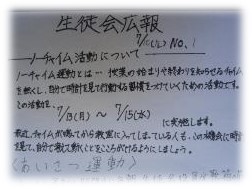 生徒会広報
7/11(土) NO.1
ノーチャイム活動について
ノーチャイム運動とは…授業の始まりや終わりを知らせるチャイム
を無くし、自分で時計を見て行動する習慣をつけていくための活動です。
この活動を、
7/13(月) ～ 7/15(水)
に実施します。
最近、チャイムが鳴ってから教室に入ってしまっている人も、この機会に時計
を見て、自分で考えて動くことをこころがけるようにしましょう。
(あいさつ運動)